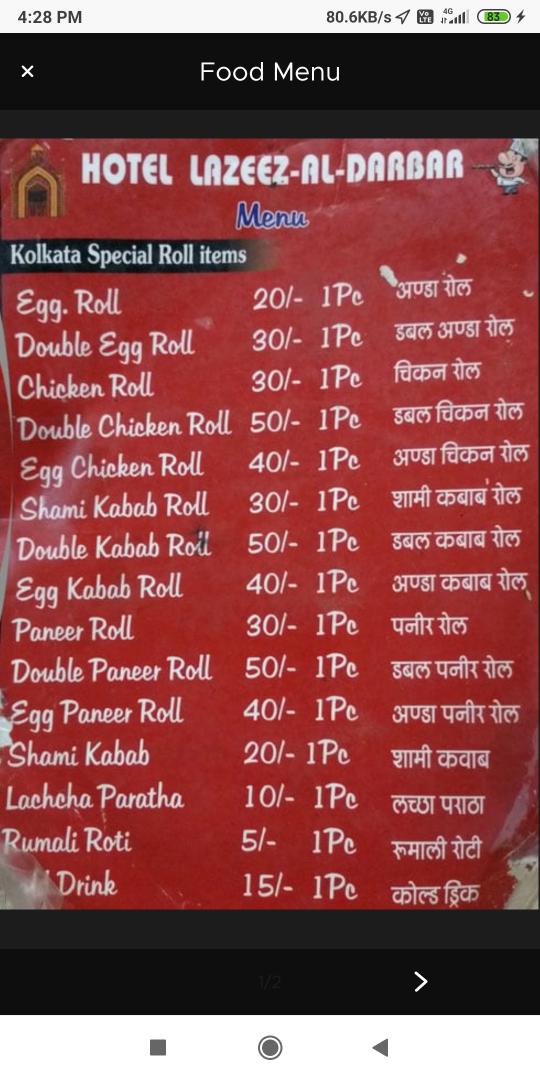 4:28 PM 80.6KB/s Vo LTE 4G 83
× Food Menu
HOTEL LAZEEZ-AL-DARBAR
Menu
Kolkata Special Roll items
Egg. Roll 20/- 1Pc अण्डा रोल
Double Egg Roll 30/- 1Pc डबल अण्डा रोल
Chicken Roll 30/- 1Pc चिकन रोल
Double Chicken Roll 50/- 1Pc डबल चिकन रोल
Egg Chicken Roll 40/- 1Pc अण्डा चिकन रोल
Shami Kabab Roll 30/- 1Pc शामी कबाब रोल
Double Kabab Roll 50/- 1Pc डबल कबाब रोल
Egg Kabab Roll 40/- 1Pc अण्डा कबाब रोल
Paneer Roll 30/- 1Pc पनीर रोल
Double Paneer Roll 50/- 1Pc डबल पनीर रोल
Egg Paneer Roll 40/- 1Pc अण्डा पनीर रोल
Shami Kabab 20/- 1Pc शामी कवाब
Lachcha Paratha 10/- 1Pc लच्छा पराठा
Rumali Roti 5/- 1Pc रूमाली रोटी
Drink 15/- 1Pc कोल्ड ड्रिंक
1/2